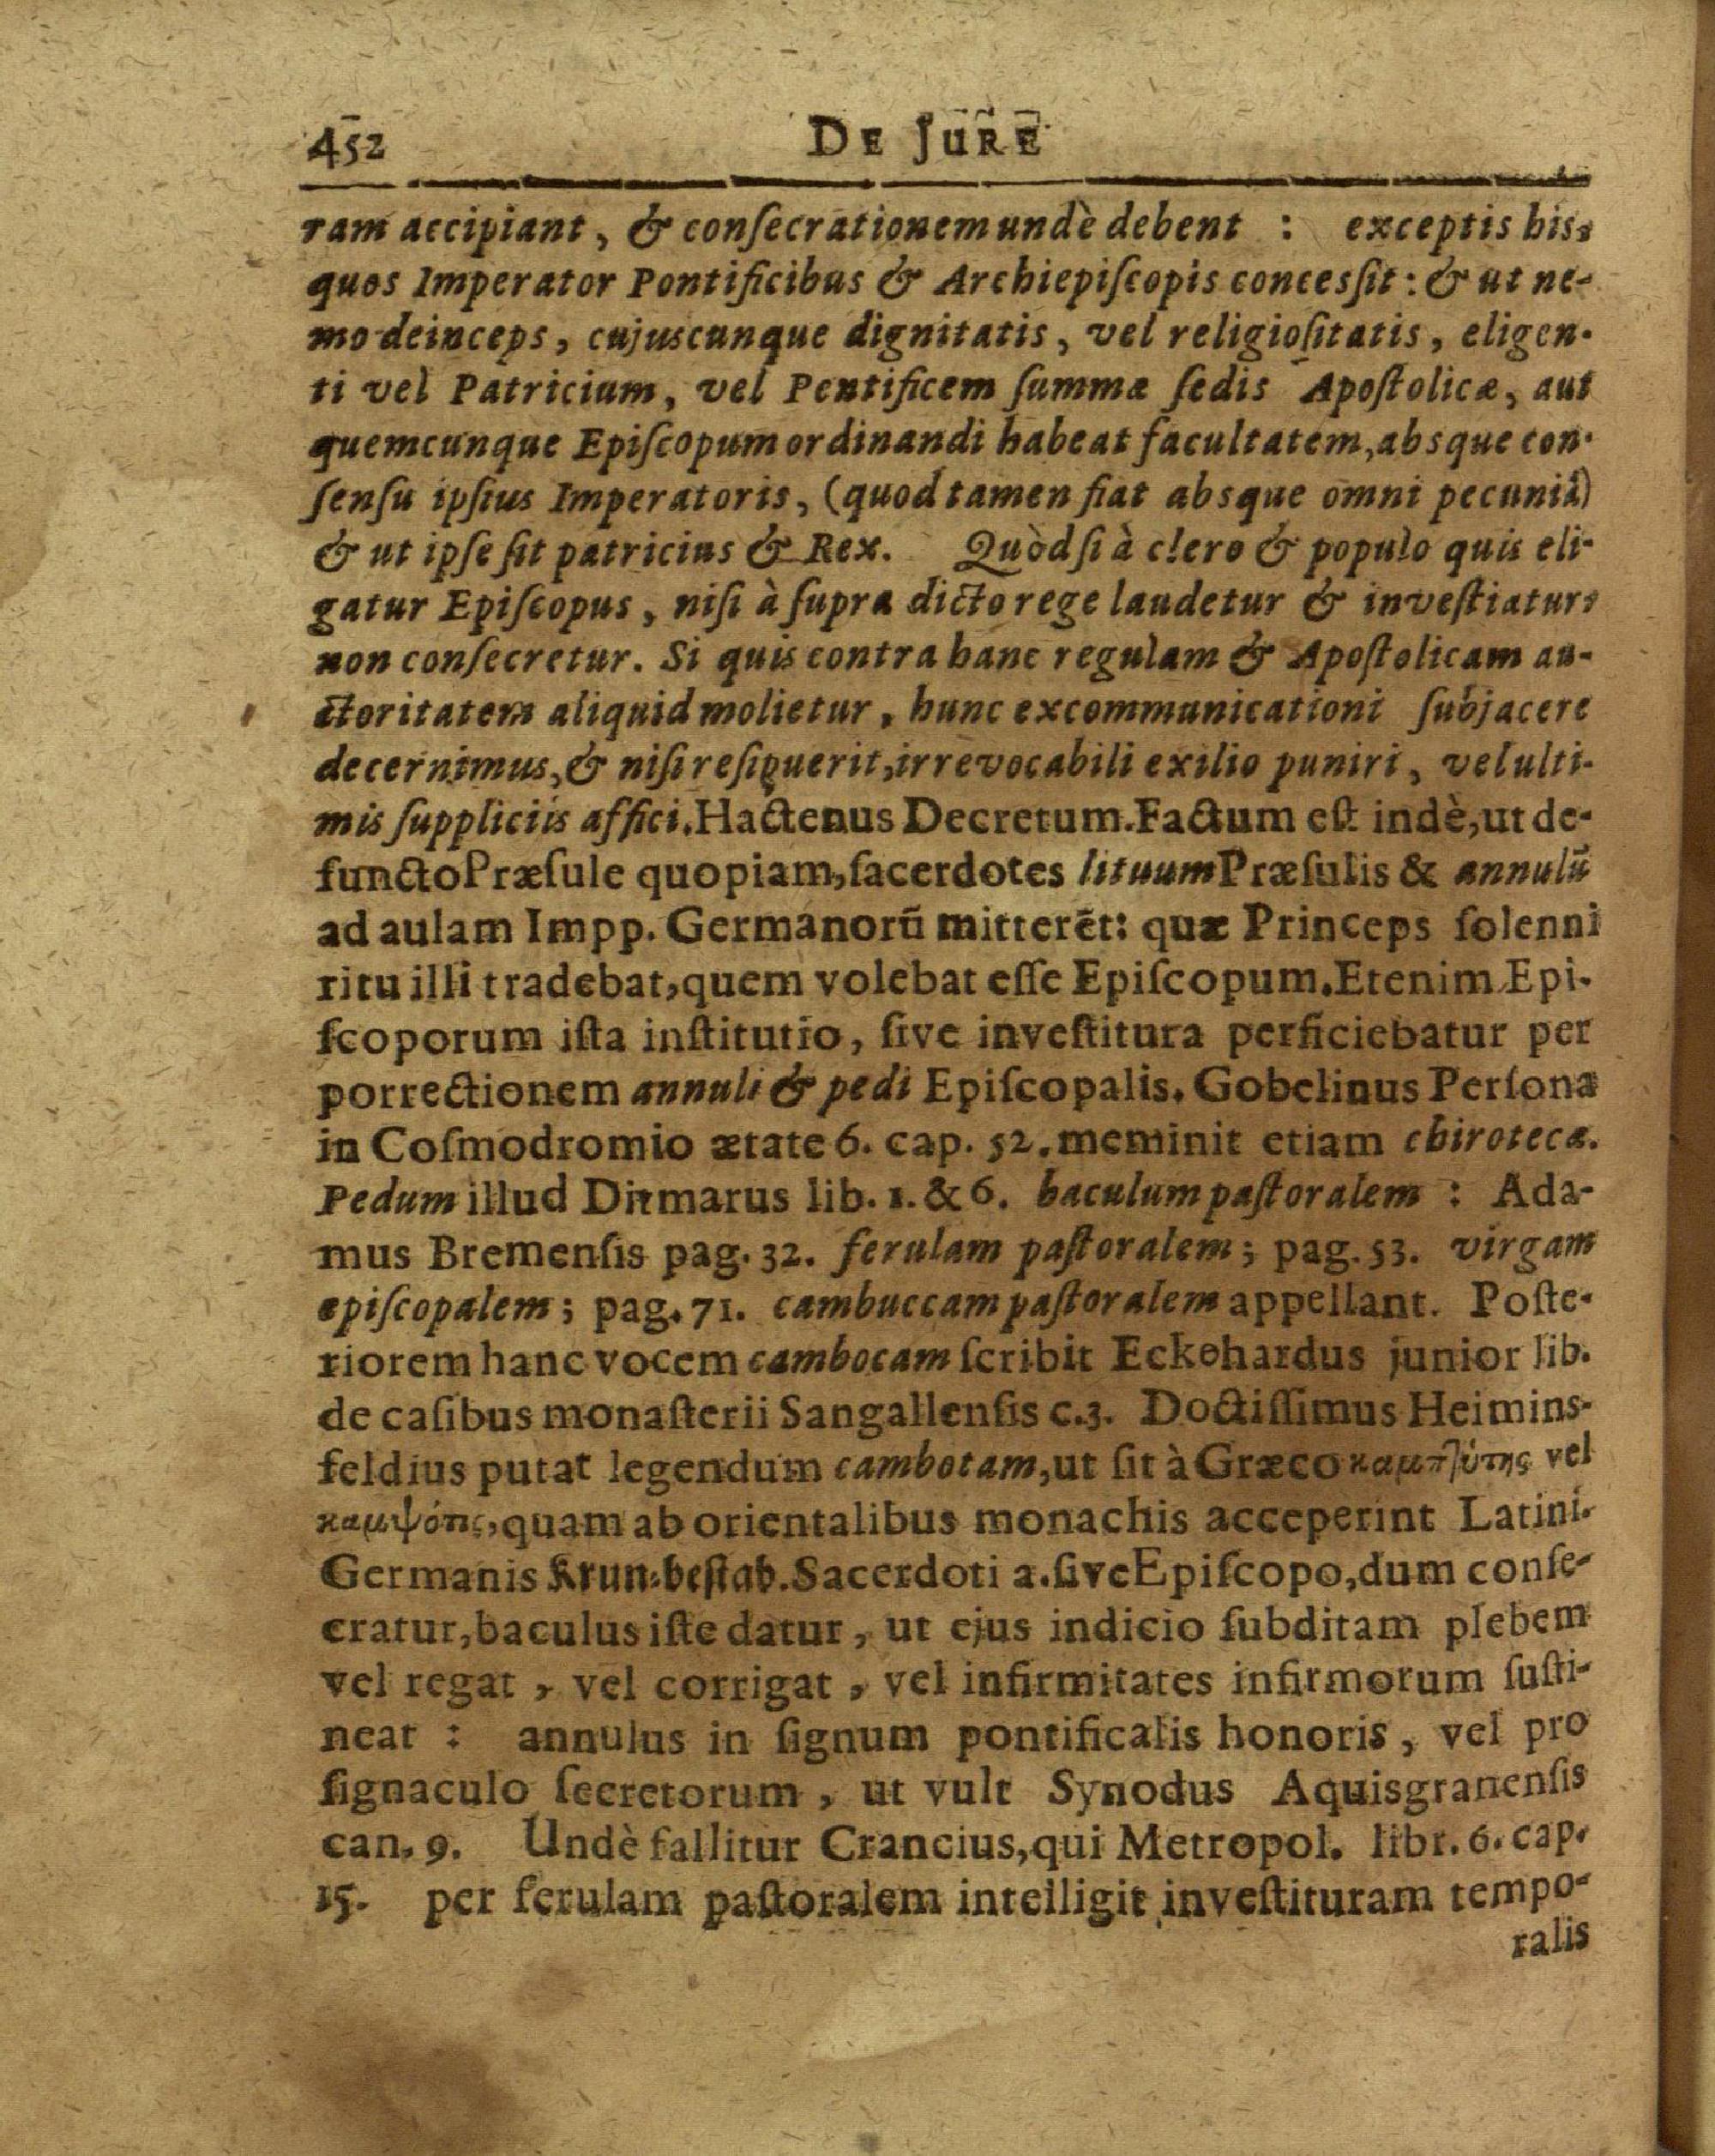 452 DE JURE
ram accipiant, & conſecrationem undè debent : exceptis his,
quos Imperator Pontificibus & Archiepiſcopis concesſit: & ut ne-
mo deinceps, cujuscunque dignitatis, vel religioſitatis, eligen-
ti vel Patricium, vel Pentificem ſummæ ſedis Apoſtolicæ, aut
quemcunque Epiſcopum ordinandi habeat facultatem, absque con-
ſenſu ipſius Imperatoris, (quod tamen fiat absque omni pecuniâ)
& ut ipſe ſit patricius & Rex. Quòd ſi à clero & populo quis eli-
gatur Epiſcopus, niſi à ſupra dicto rege laudetur & inveſtiatur,
non conſecretur. Si quis contra hanc regulam & Apoſtolicam au-
ctoritatem aliquid molietur, hunc excommunicationi ſubjacere
decernimus, & niſi reſipuerit, irrevocabili exilio puniri, vel ulti-
mis ſuppliciis affici. Hactenus Decretum. Factum eſt indè, ut de-
functo Præſule quopiam, ſacerdotes lituum Præſulis & annulũ
ad aulam Impp. Germanorũ mitterẽt: quæ Princeps ſolenni
ritu illi tradebat, quem volebat eſſe Epiſcopum. Etenim Epi-
ſcoporum iſta inſtitutio, ſive inveſtitura perficiebatur per
porrectionem annuli & pedi Epiſcopalis. Gobelinus Perſona
in Coſmodromio ætate 6. cap. 52. meminit etiam chirotecæ.
Pedum illud Ditmarus lib. 1. & 6. baculum paſtoralem : Ada-
mus Bremenſis pag. 32. ferulam paſtoralem; pag. 53. virgam
epiſcopalem; pag. 71. cambuccam paſtoralem appellant. Poſte-
riorem hanc vocem cambocam ſcribit Eckehardus junior lib.
de caſibus monaſterii Sangallenſis c. 3. Doctiſſimus Heimins-
feldius putat legendum cambotam, ut ſit à Græco vel
καμψότης, quam ab orientalibus monachis acceperint Latini.
Germanis Sacerdoti a. ſive Epiſcopo, dum conſe-
cratur, baculus iſte datur, ut ejus indicio ſubditam plebem
vel regat, vel corrigat, vel infirmitates infirmorum ſuſti-
neat : annulus in ſignum pontificalis honoris, vel pro
ſignaculo ſecretorum, ut vult Synodus Aquisgranenſis
can. 9. Undè fallitur Crancius, qui Metropol. libr. 6. cap.
15. per ferulam paſtoralem intelligit inveſtituram tempo-
ralis